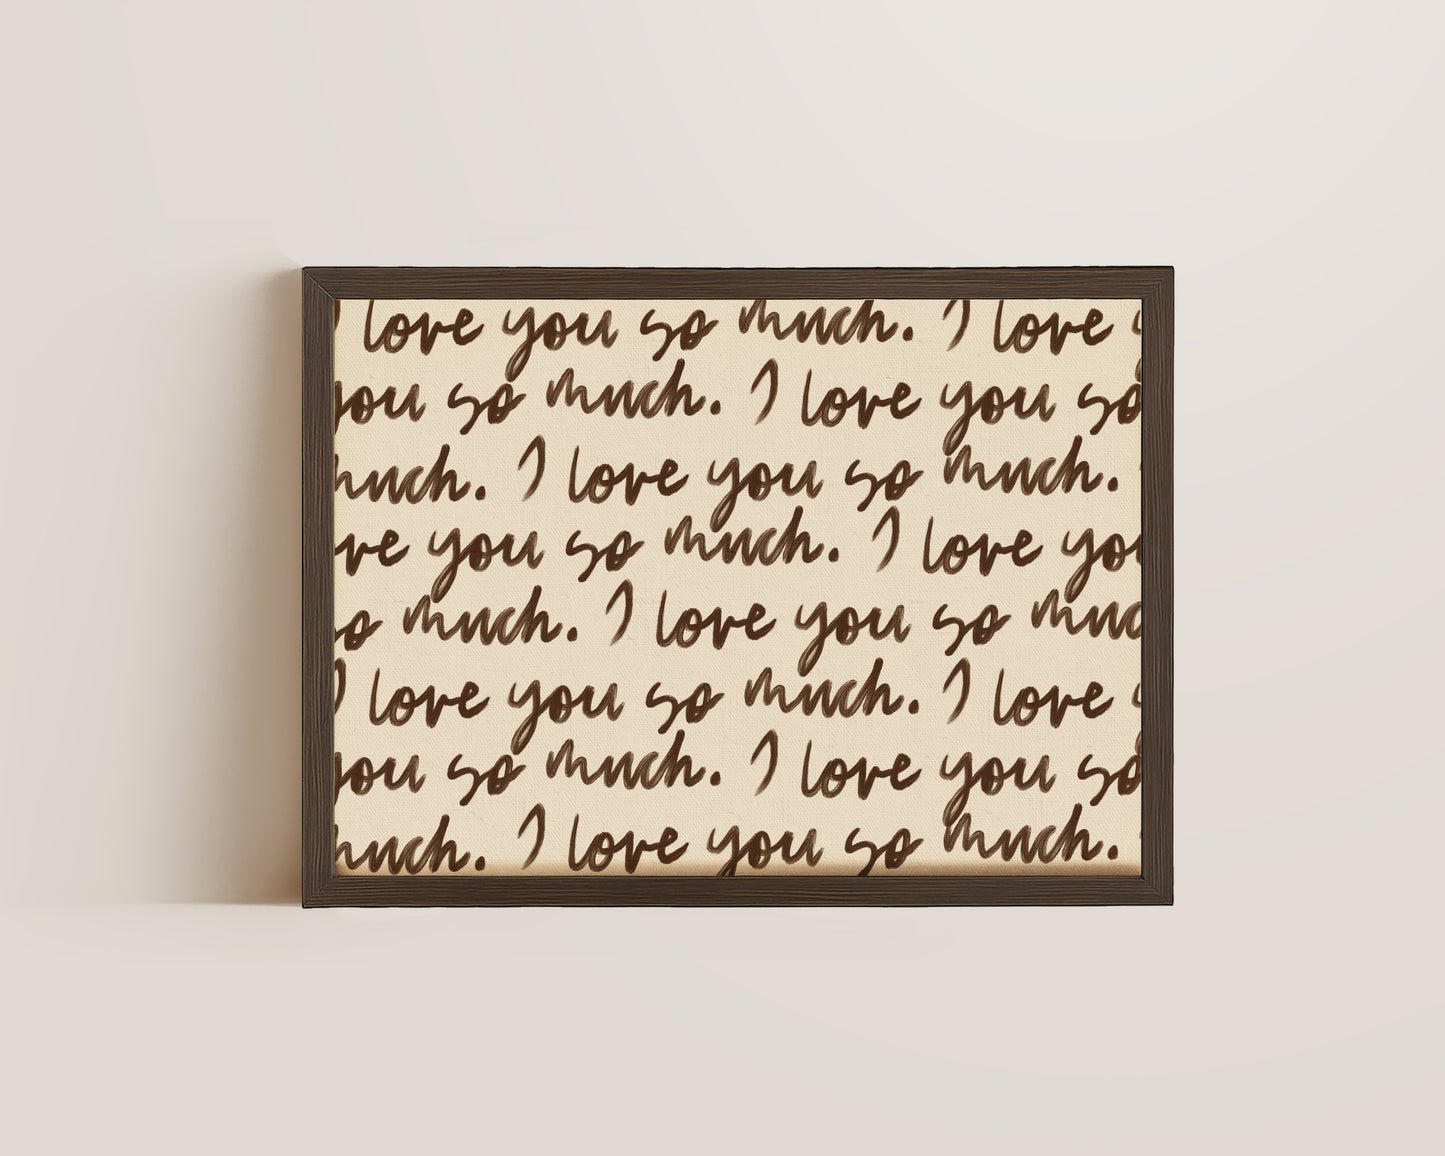 I love you so much. I love y
you so much. I love you so
much. I love you so much.
ve you so much. I love you
so much. I love you so muc
I love you so much. I love y
you so much. I love you so
much. I love you so much.